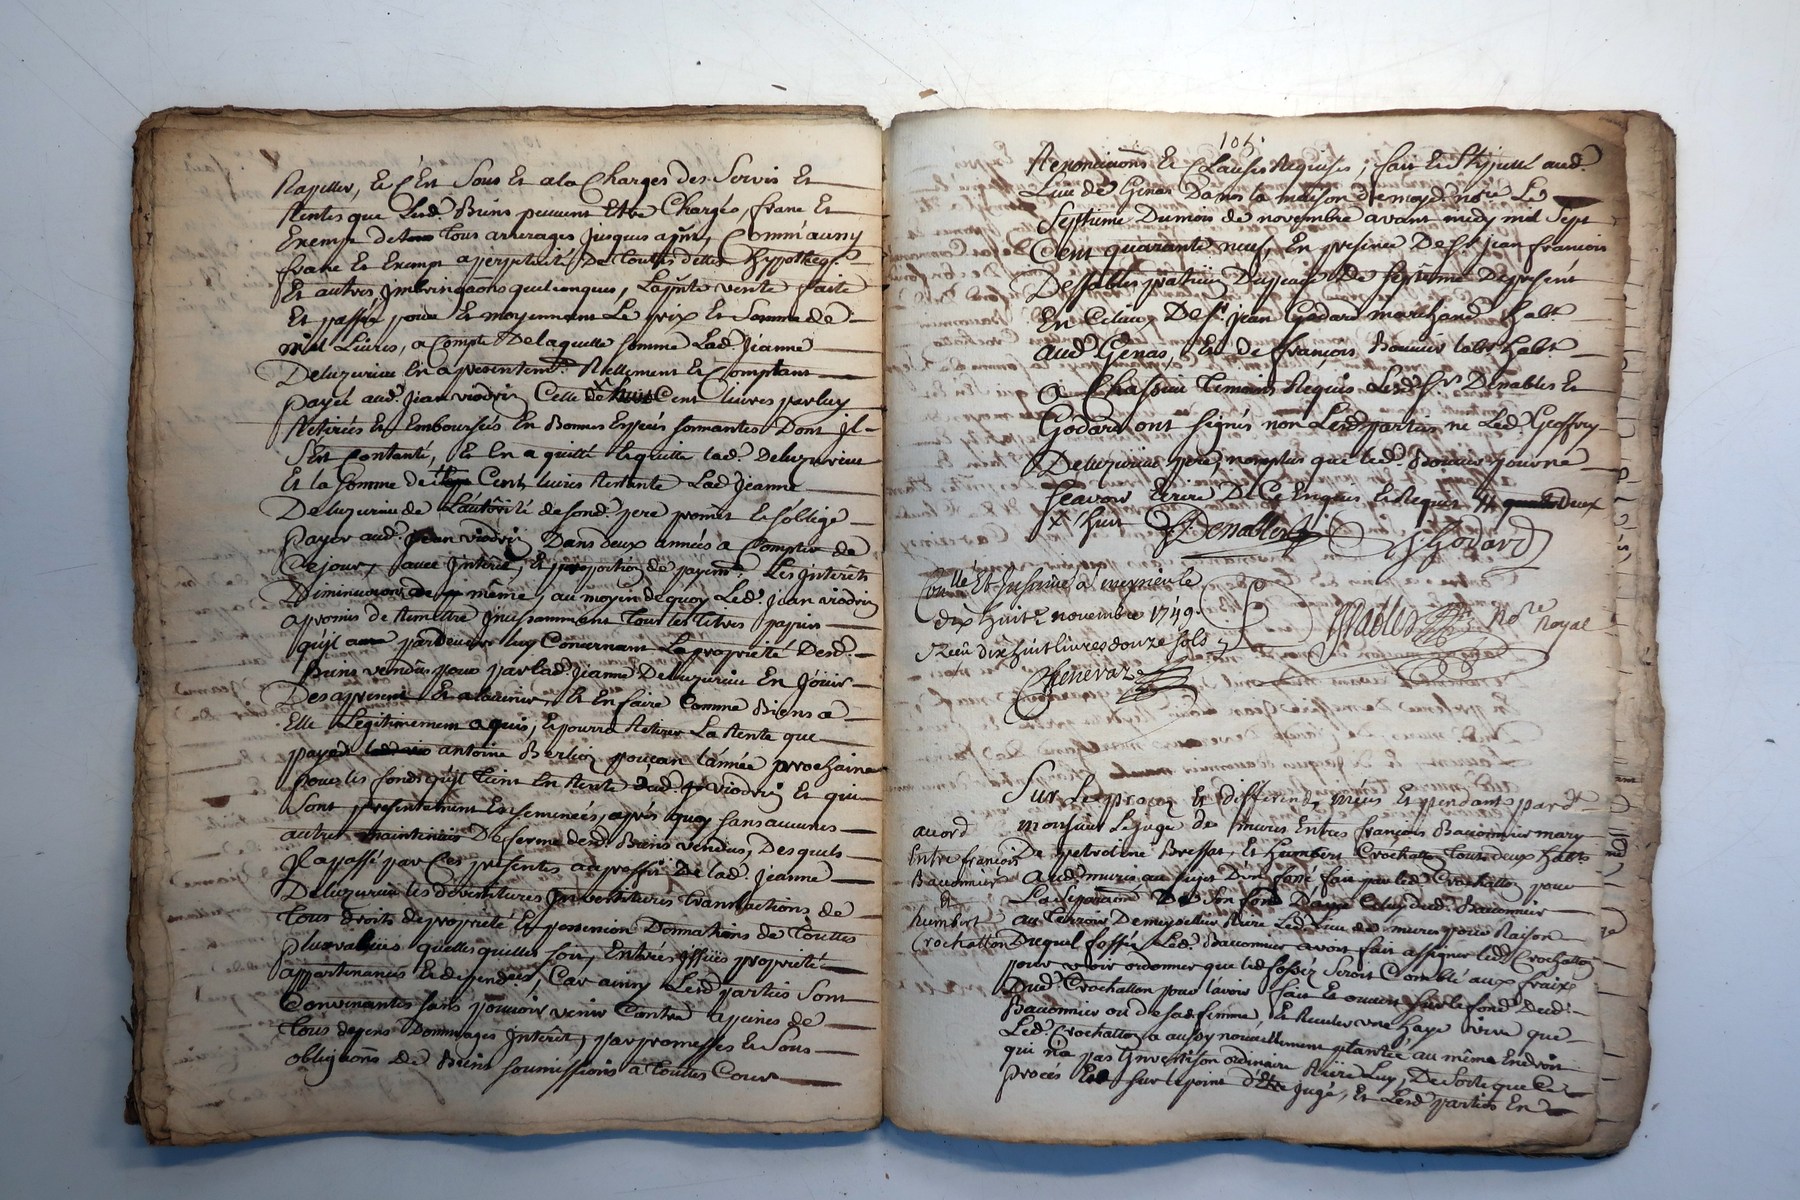 Rapeller, Et C'Est Sous Et a la Charges des Servis Et
Rentes que Lesd. Biens peuvent Etre Chargés, franc Et
Exempt de Tous arrerages Jusques a Comm'aussy
franc Et Exempt a perpetuité De Toutes dettes Hypotheqs.
Et autres quelconques, La pnte vente faite
Et passée pour Et moyennant Le prix Et Somme de
mil Livres, a Compte De laquelle Somme Lad. Jeanne
Deluzurieu En a presentemt. Rellement Et Comptant
payé aud. Jean viodrin Celle de huit Cent livres par luy
Retirées Et Emboursées En Bonnes Espéces Sonnantes Dont jl
S'Est Contanté, Et En a quitté Et quitte lad. Deluzurieu
Et la Somme de Cent livres Restante Lad. Jeanne
Deluzurieu de L'autôrité de Sond. pere promet Et S'oblige
payer aud. Jean viodrin Dans deux années a Compter de
Ce jour, avec Interêt, Et a proportion de payemt. Les Interêts
Diminueront de même, au moyen de quoy Led. Jean viodrin
a promis de Remettre Tous les Titres papiers
qu'jl a pardevers luy Concernant La proprieté Desd.
Biens vendus pour par lad. Jeanne Deluzurieu En Jöuir
Des apresent Et a lavenir, Et En faire Comme Biens a
Elle Legitimement aquis, Et pourra Retirer La Rente que
antoine Berlioz pour l'année prochaine
pour les fonds qu'jl Tient En Rente dud. viodrin Et qui
Sont presentement Ensemencés, aprés quoy Sans aucunes
autres De ferme desd. Biens vendus, Desquels
Jl a passé par Ces presentes au proffit De lad. Jeanne
Deluzurieu les devestitures Jnvestitures Translactions de
Tous droits de proprieté Et possession Donnations de Touttes
plus values quelles quelles Soit, Entrées jssües proprieté
appartenances Et dépendces, Car ainsy Lesd. parties Sont
Convenantes Sans pouvoir venir Contre a peines de
Tous dépens Dommages Interêt, par promesses Et Sous
obligaöns de Biens Soumissions a Touttes Cour
106.
Renonciaöns Et Clauses Requises; fait Et Stipullé aud.
Lieu de Genas Dans la maison De moyd. nore Le
Septieme Du mois de novembre avant midy mil Sept
Cent quarante neuf, En presence De Sr. Jean francois
Desables praticien De present
En Ce lieu, De Sr. Jean Godard marchand habt
aud. Genas, Et de françois Bonnier labr habt
a Chassieu Temoins Requis Lesd. Srs Denables Et
Godard ont Signés non Lesd. parties ne Led. Geoffrey
Deluzurieu pere, nomplus que led. Bonnier pour ne
Sçavoir Ecrire De Ce Enquis Et Requis deux
x huit J. Denables J Godard
Conllé Et Insinué a meyzieu le
dix huit novembre 1749.
Reçu dix huit livres douze Sols
Nore Royal
Chenevaz
Sur Le proces Et differend, mües Et pendant pardt
Monsieur Lejuge de mures Entre françois Bauconnier mary
De petroline Bressat, Et Humbert Crochatton Tous deux habts
aud. mures au Sujet D'un fossé fait par led. Crochatton pour
La Separaön De Son fond D'avec Celuy dud. Bauconnier
au Terroir De meysellier Riere Led. Lieu de mures pour Raison
Duquel fossés Led. Bauconnier avoit fait assigner led. Crochatton
pour voir ordonner que led. fossez Seroit Comblé aux fraix
Dud. Crochatton pour lavoir fait Et ouvert Sur le fond Dud.
Bauconnier ou de Sad. femme Et Reculer une haye vive que
Led. Crochatton a aussy nouvellement plantée au même Endroit
qui n'a pas ordinaire Riere Luy, De Sorte que le
procés Est Sur le point d'Etre Jugé, Et Lesd. parties En
acord
Entre françois
Bauconnier
Et
humbert
Crochatton